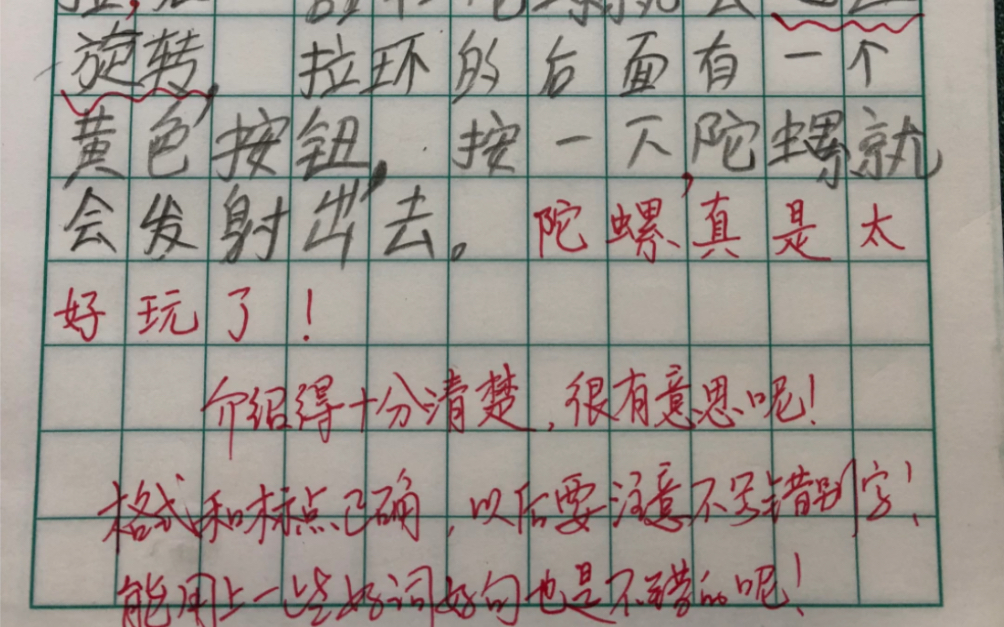 就会
旋转，拉环的后面有一个
黄色按钮，按一下，陀螺就
会发射出去。陀螺真是太
好玩了！
介绍得十分清楚，很有意思呢！
格式和标点已确，以后要注意不写错别字！
能用上一些好词好句也是不错的呢！